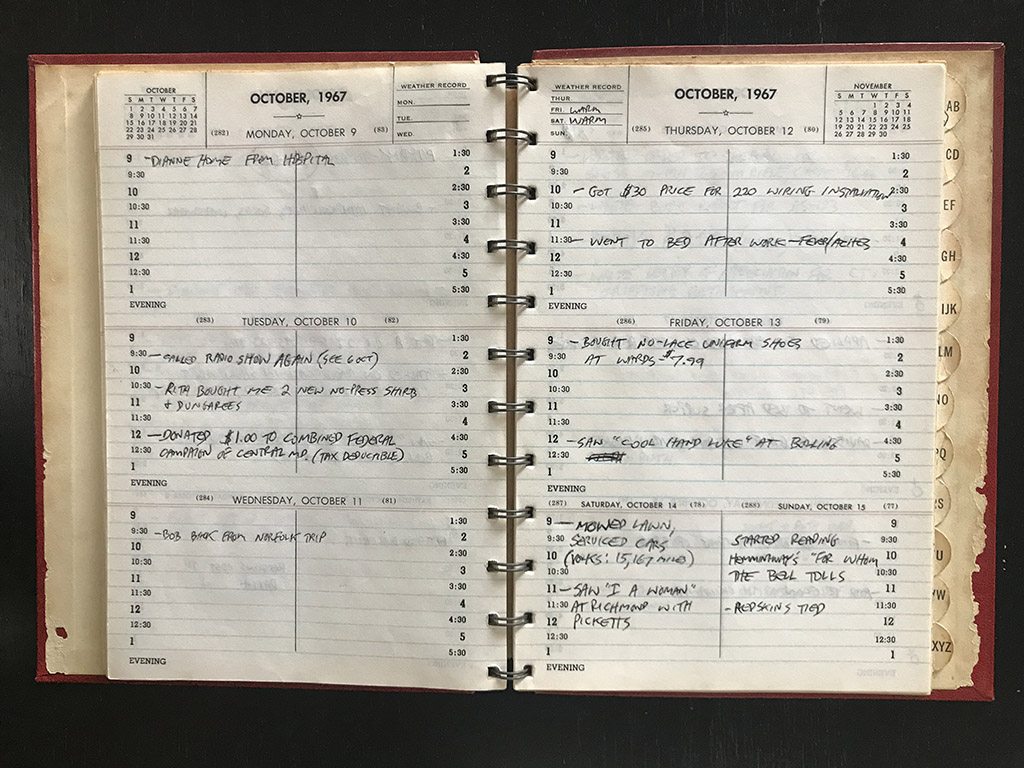 OCTOBER
S M T W T F S
1 2 3 4 5 6 7
8 9 10 11 12 13 14
15 16 17 18 19 20 21
22 23 24 25 26 27 28
29 30 31
OCTOBER, 1967
WEATHER RECORD
MON.
TUE.
WED.
(282) MONDAY, OCTOBER 9 (83)
9 - DIANNE HOME FROM HOSPITAL 1:30
9:30 2
10 2:30
10:30 3
11 3:30
11:30 4
12 4:30
12:30 5
1 5:30
EVENING
(283) TUESDAY, OCTOBER 10 (82)
9 1:30
9:30 - CALLED RADIO SHOW AGAIN (SEE 6 OCT) 2
10 2:30
10:30 - RITA BOUGHT ME 2 NEW NO-PRESS SHIRTS 3
11 & DUNGAREES 3:30
11:30 4
12 - DONATED $1.00 TO COMBINED FEDERAL 4:30
12:30 CAMPAIGN OF CENTRAL MD. (TAX DEDUCABLE) 5
1 5:30
EVENING
(284) WEDNESDAY, OCTOBER 11 (81)
9 1:30
9:30 - BOB BACK FROM NORFOLK TRIP 2
10 2:30
10:30 3
11 3:30
11:30 4
12 4:30
12:30 5
1 5:30
EVENING
WEATHER RECORD
THUR.
FRI. WARM
SAT. WARM
SUN.
OCTOBER, 1967
NOVEMBER
S M T W T F S
1 2 3 4
5 6 7 8 9 10 11
12 13 14 15 16 17 18
19 20 21 22 23 24 25
26 27 28 29 30
(285) THURSDAY, OCTOBER 12 (80)
9 1:30
9:30 2
10 - GOT $30 PRICE FOR 220 WIRING INSTALLATION 2:30
10:30 3
11 3:30
11:30 - WENT TO BED AFTER WORK - FEVER/ACHES 4
12 4:30
12:30 5
1 5:30
EVENING
(286) FRIDAY, OCTOBER 13 (79)
9 - BOUGHT NO-LACE UNIFORM SHOES 1:30
9:30 AT WARDS - $7.99 2
10 2:30
10:30 3
11 3:30
11:30 4
12 - SAW "COOL HAND LUKE" AT BOLLING 4:30
12:30 5
1 5:30
EVENING
(287) SATURDAY, OCTOBER 14 (78)
9 - MOWED LAWN,
9:30 SERVICED CARS
10 (VOLKS: 15,167 MILES)
10:30
11 - SAW "I A WOMAN"
11:30 AT RICHMOND WITH
12 PICKETTS
12:30
1
EVENING
(288) SUNDAY, OCTOBER 15 (77)
9
STARTED READING 9:30
HEMMINGWAY'S "FOR WHOM 10
THE BELL TOLLS 10:30
11
- REDSKINS TIED 11:30
12
12:30
1
AB
CD
EF
GH
IJK
LM
NO
PQ
RS
U
YW
XYZ